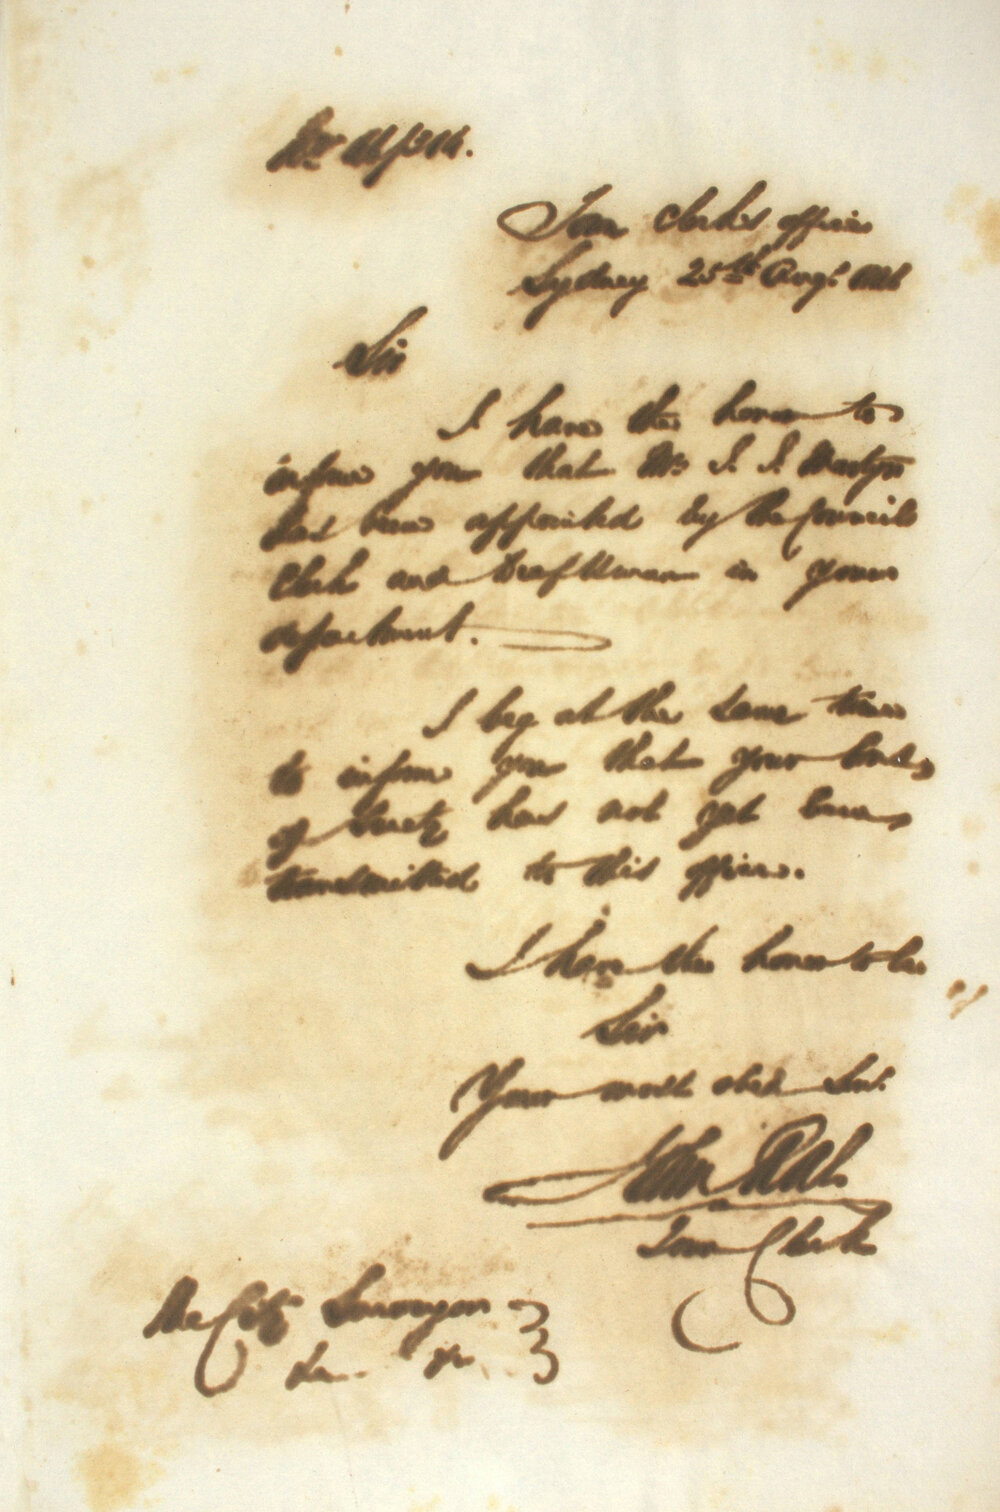 Town Clerk's office
Sydney 25th Augt. 
Sir
I have the honor to
inform you that Mr J. J. Martyn
has been appointed by the Council
Clerk and Draftsman in your
department.
I beg at the same time
to inform you that your bond
of surety has not yet been
transmitted to this office.
I have the honor to be
Sir
Your most obed Svt.
John Rae
Town Clerk
The City Surveyor